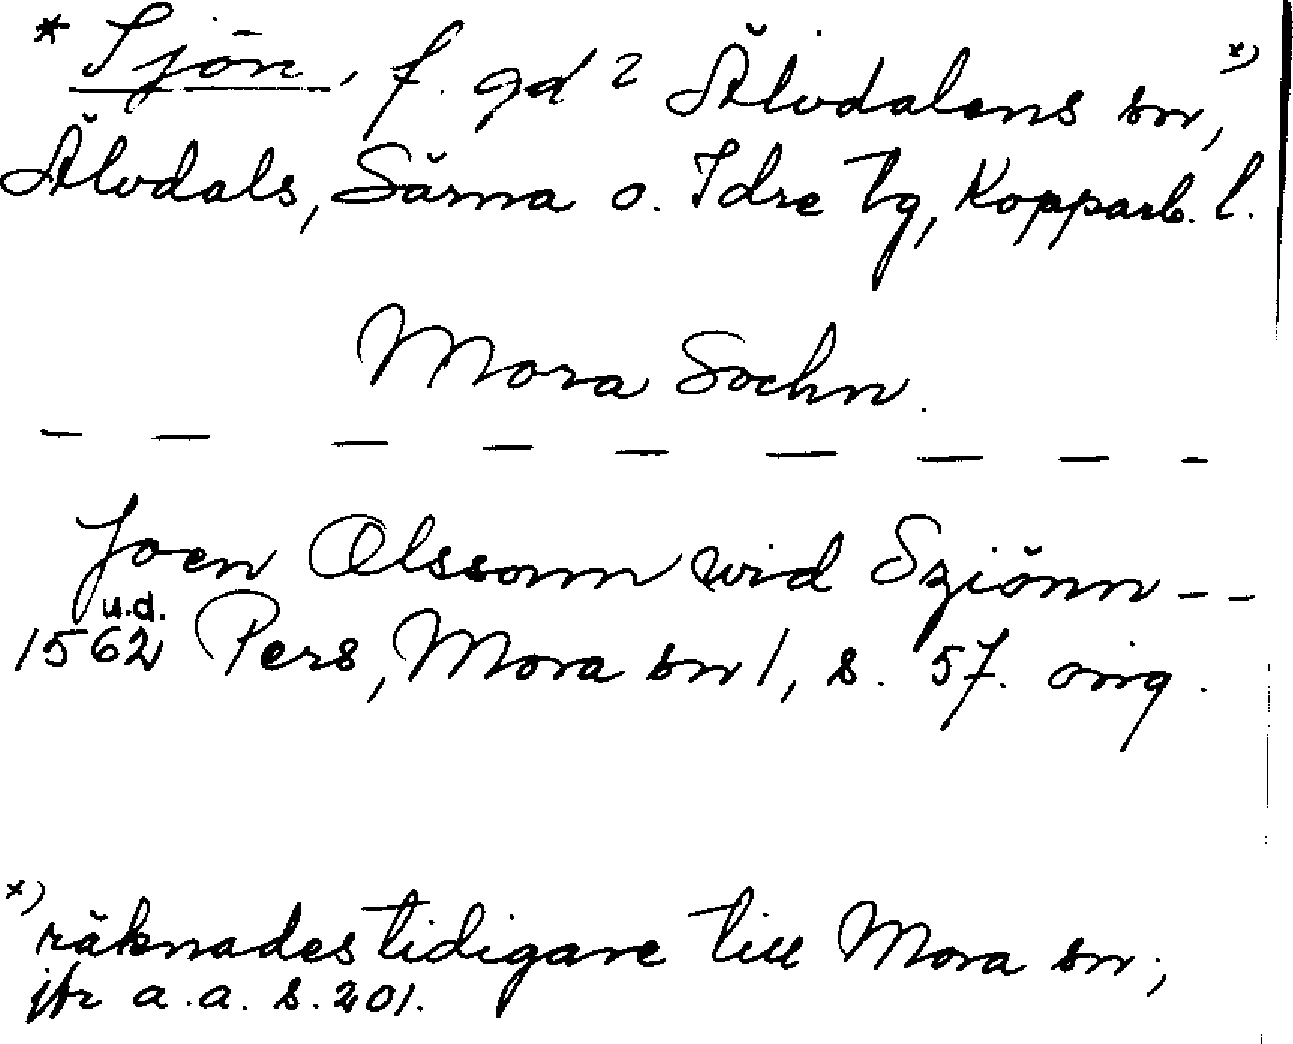 * Sjön, f. gd ² Älvdalens sn, x)
Älvdals, Särna o. Idre tg, Kopparb. l.
Mora Sochn.
— — — — — — — — -
Joen Olssonn wid Sziönn --
1562 u.d. Pers, Mora sn 1, s. 57. orig.
x) räknades tidigare till Mora sn;
jfr a.a. s. 201.